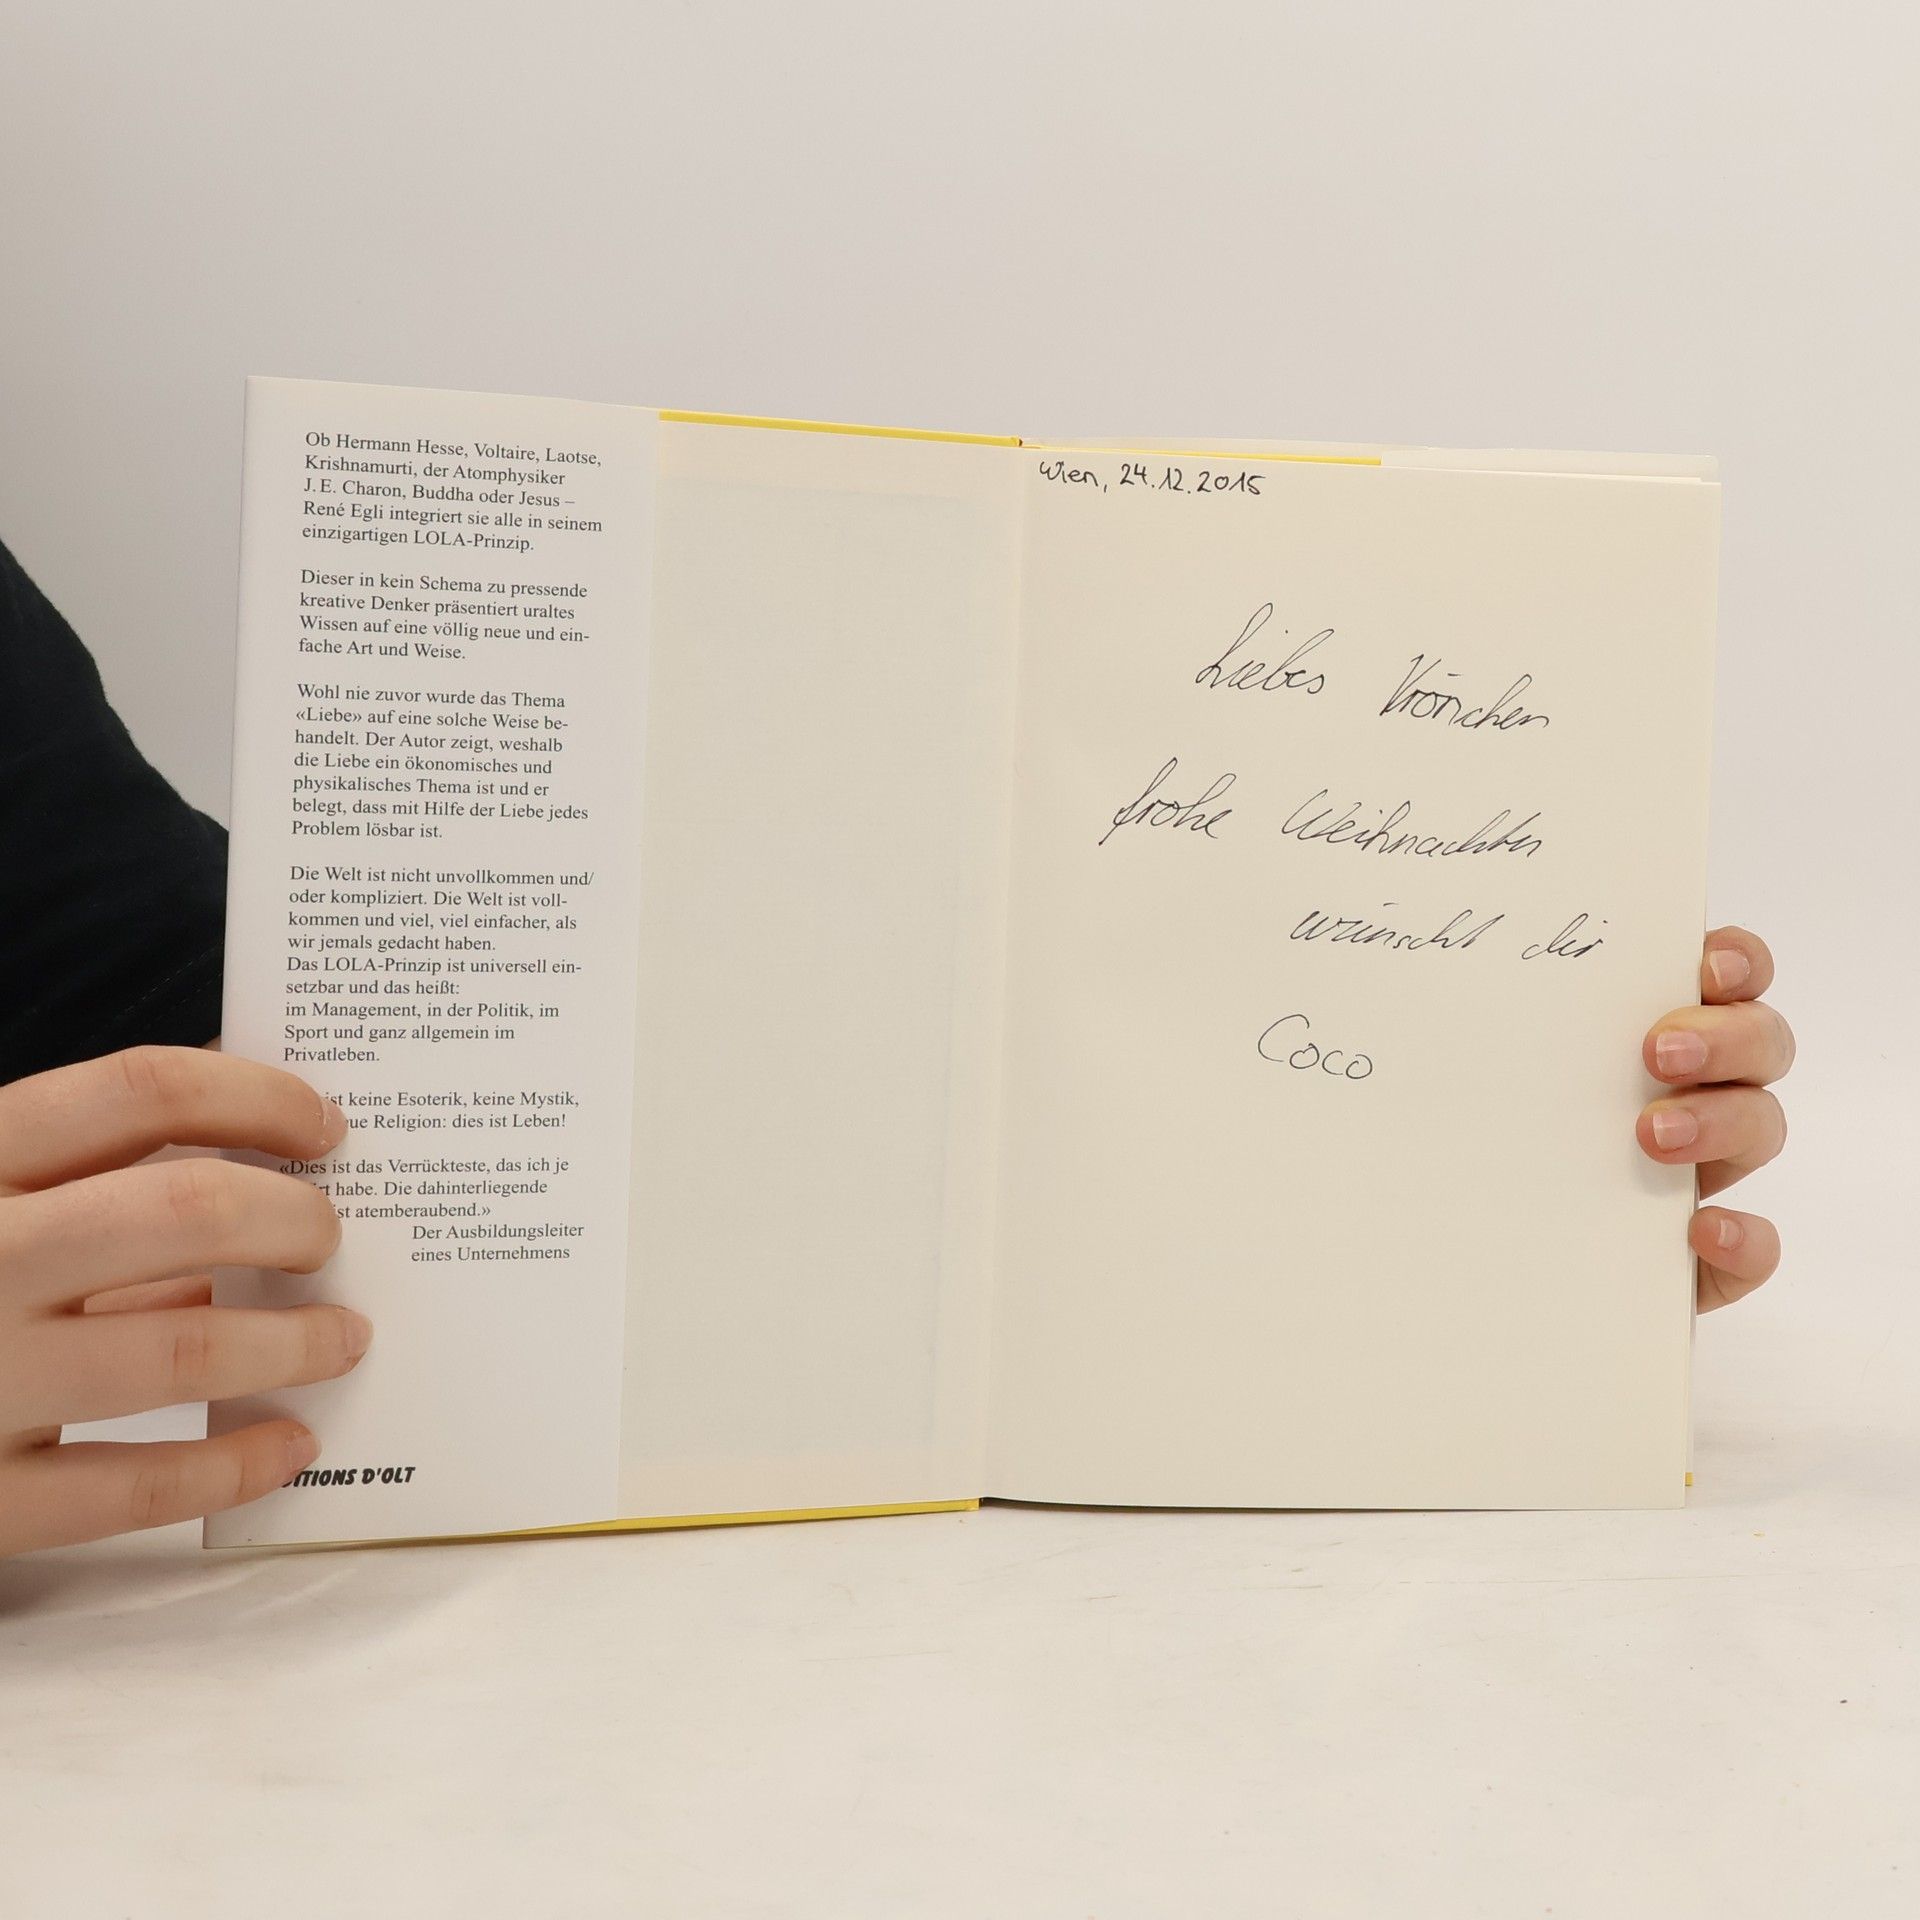 Ob Hermann Hesse, Voltaire, Laotse,
Krishnamurti, der Atomphysiker
J. E. Charon, Buddha oder Jesus –
René Egli integriert sie alle in seinem
einzigartigen LOLA-Prinzip.
Dieser in kein Schema zu pressende
kreative Denker präsentiert uraltes
Wissen auf eine völlig neue und ein-
fache Art und Weise.
Wohl nie zuvor wurde das Thema
«Liebe» auf eine solche Weise be-
handelt. Der Autor zeigt, weshalb
die Liebe ein ökonomisches und
physikalisches Thema ist und er
belegt, dass mit Hilfe der Liebe jedes
Problem lösbar ist.
Die Welt ist nicht unvollkommen und/
oder kompliziert. Die Welt ist voll-
kommen und viel, viel einfacher, als
wir jemals gedacht haben.
Das LOLA-Prinzip ist universell ein-
setzbar und das heißt:
im Management, in der Politik, im
Sport und ganz allgemein im
Privatleben.
ist keine Esoterik, keine Mystik,
Religion: dies ist Leben!
«Dies ist das Verrückteste, das ich je
habe. Die dahinterliegende
ist atemberaubend.»
Der Ausbildungsleiter
eines Unternehmens
D'OLT
Wien, 24.12.2015
Liebes
frohe Weihnachten
wünscht dir
Coco